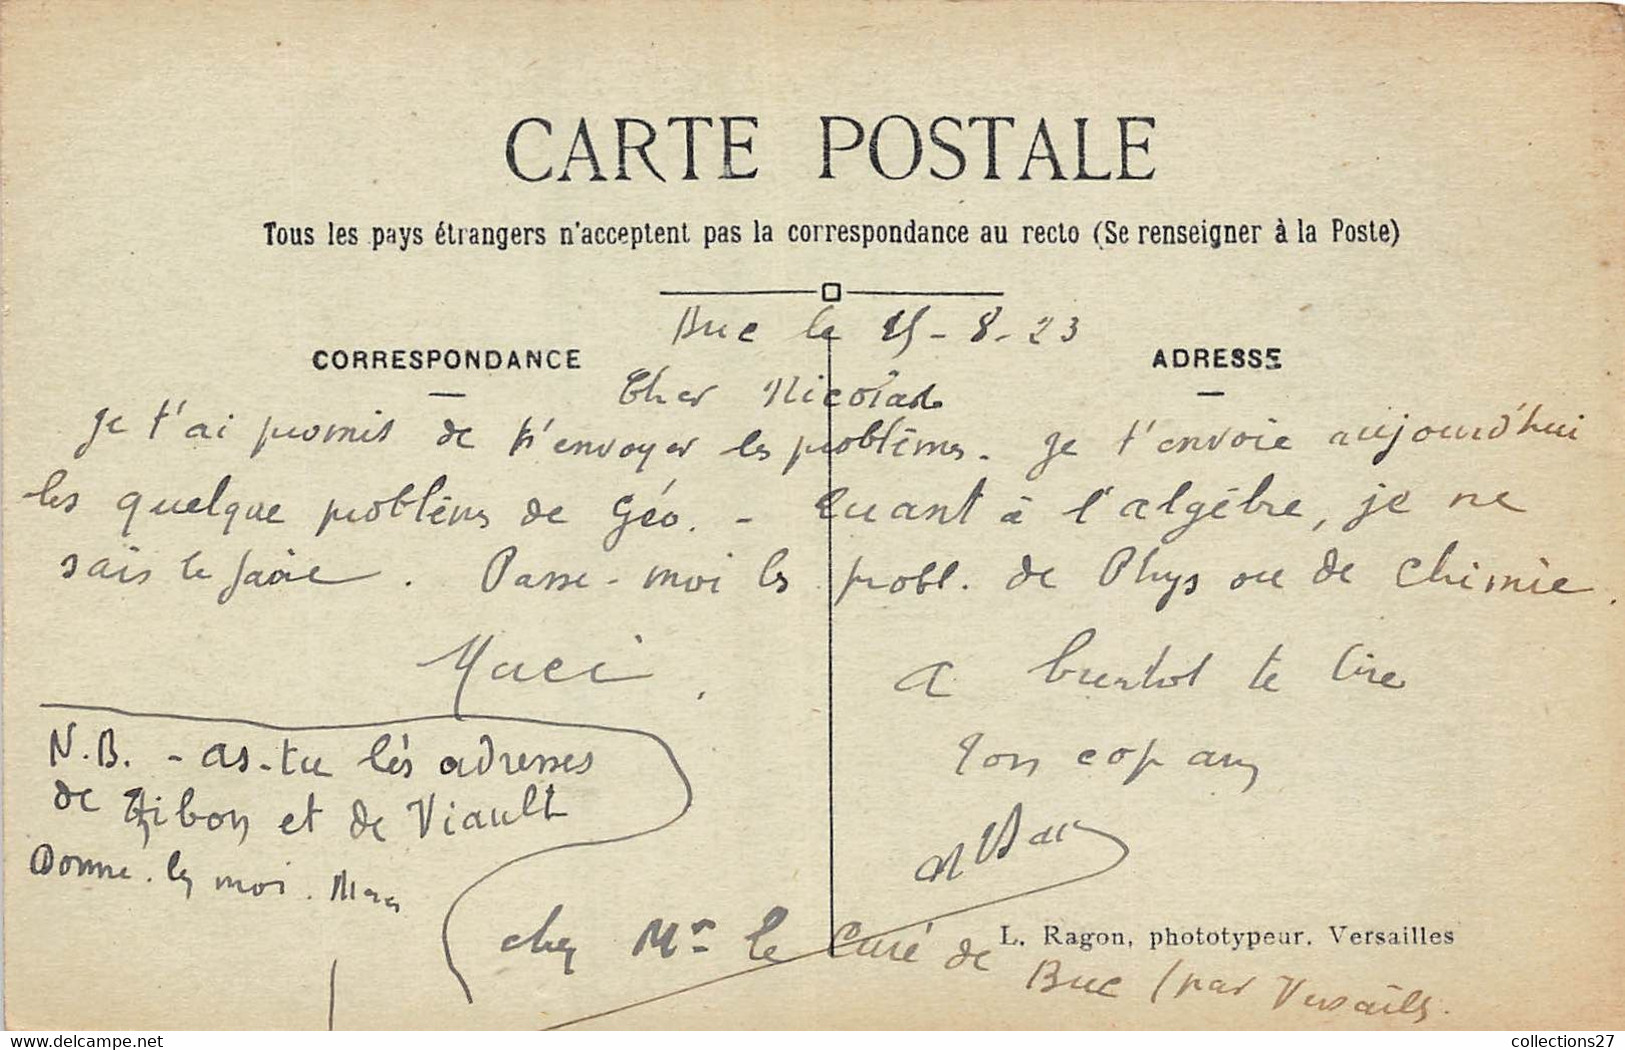 CARTE POSTALE
Tous les pays étrangers n'acceptent pas la correspondance au recto (Se renseigner à la Poste)
Buc le 15-8-23
CORRESPONDANCE
ADRESSE
Cher Nicolas
Je t'ai promis de t'envoyer les problèmes. Je t'envoie aujourd'hui
les quelque problèmes de Géo. - Quant à l'algèbre, je ne
sais le faire. Passe-moi les probl. de Phys ou de Chimie.
Merci.
A bientot te lire
Ton copain
N.B. - as-tu les adresses
de et de Viault
Donne-les moi. Merci
chez Mr le Curé de
Buc (par Versailles.
L. Ragon, phototypeur, Versailles
collections27